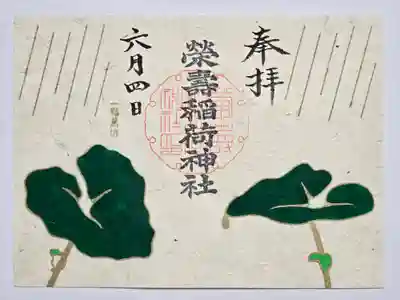 奉拝
榮壽稲荷神社
六月四日